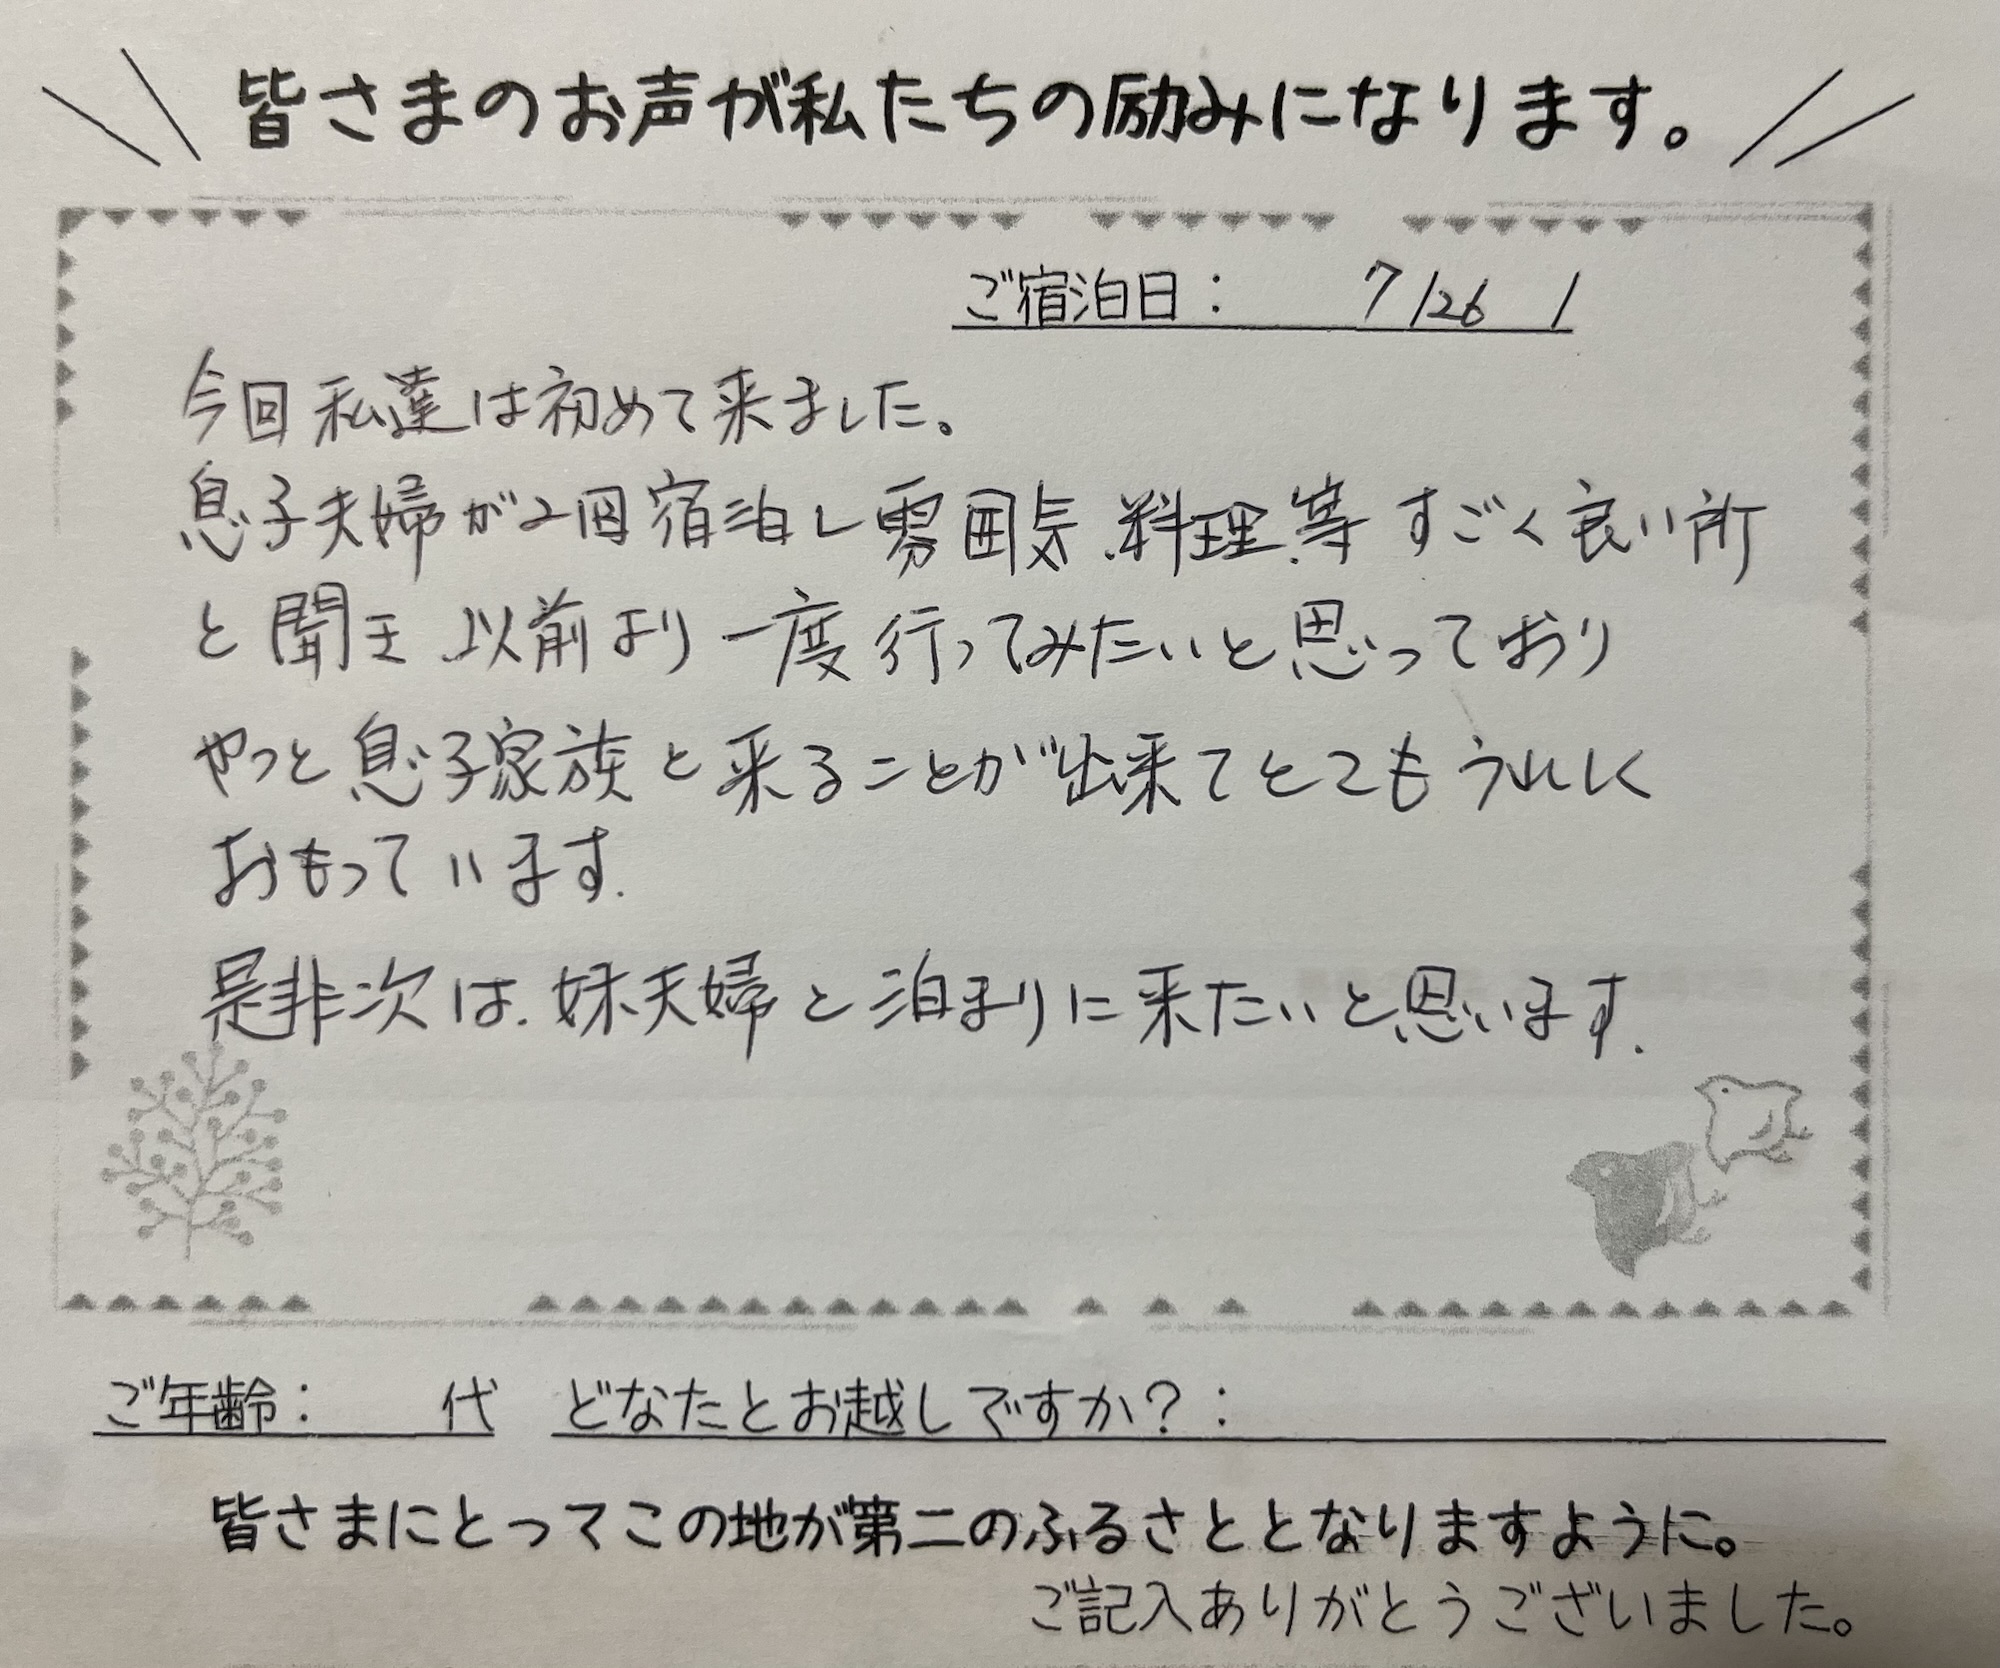 皆さまのお声が私たちの励みになります。
ご宿泊日： 7/26 /
今回私達は初めて来ました。
息子夫婦が2回宿泊し雰囲気、料理、等すごく良い所
と聞き、以前より一度行ってみたいと思っており
やっと息子家族と来ることが出来てとてもうれしく
おもっています。
是非次は、妹夫婦と泊まりに来たいと思います。
ご年齢： 代 どなたとお越しですか？：
皆さまにとってこの地が第二のふるさととなりますように。
ご記入ありがとうございました。